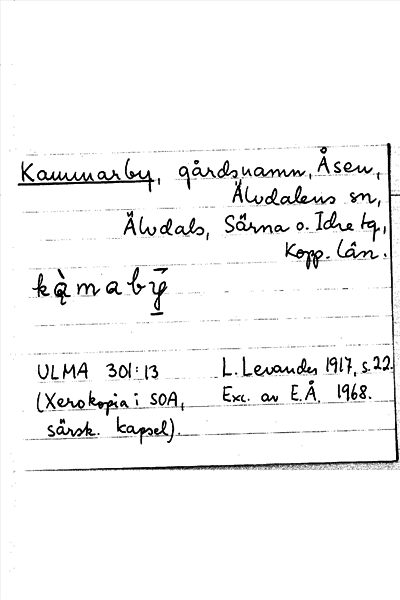 Kammarby, gårdsnamn, Åsen,
Älvdalens sn,
Älvdals, Särna o. Idre tg,
Kopp. län.
kà̱mabȳ̱
ULMA 301:13 L. Levander 1917, s. 22.
(Xerokopia i SOA, Exc. av E.Å. 1968.
särsk. kapsel).